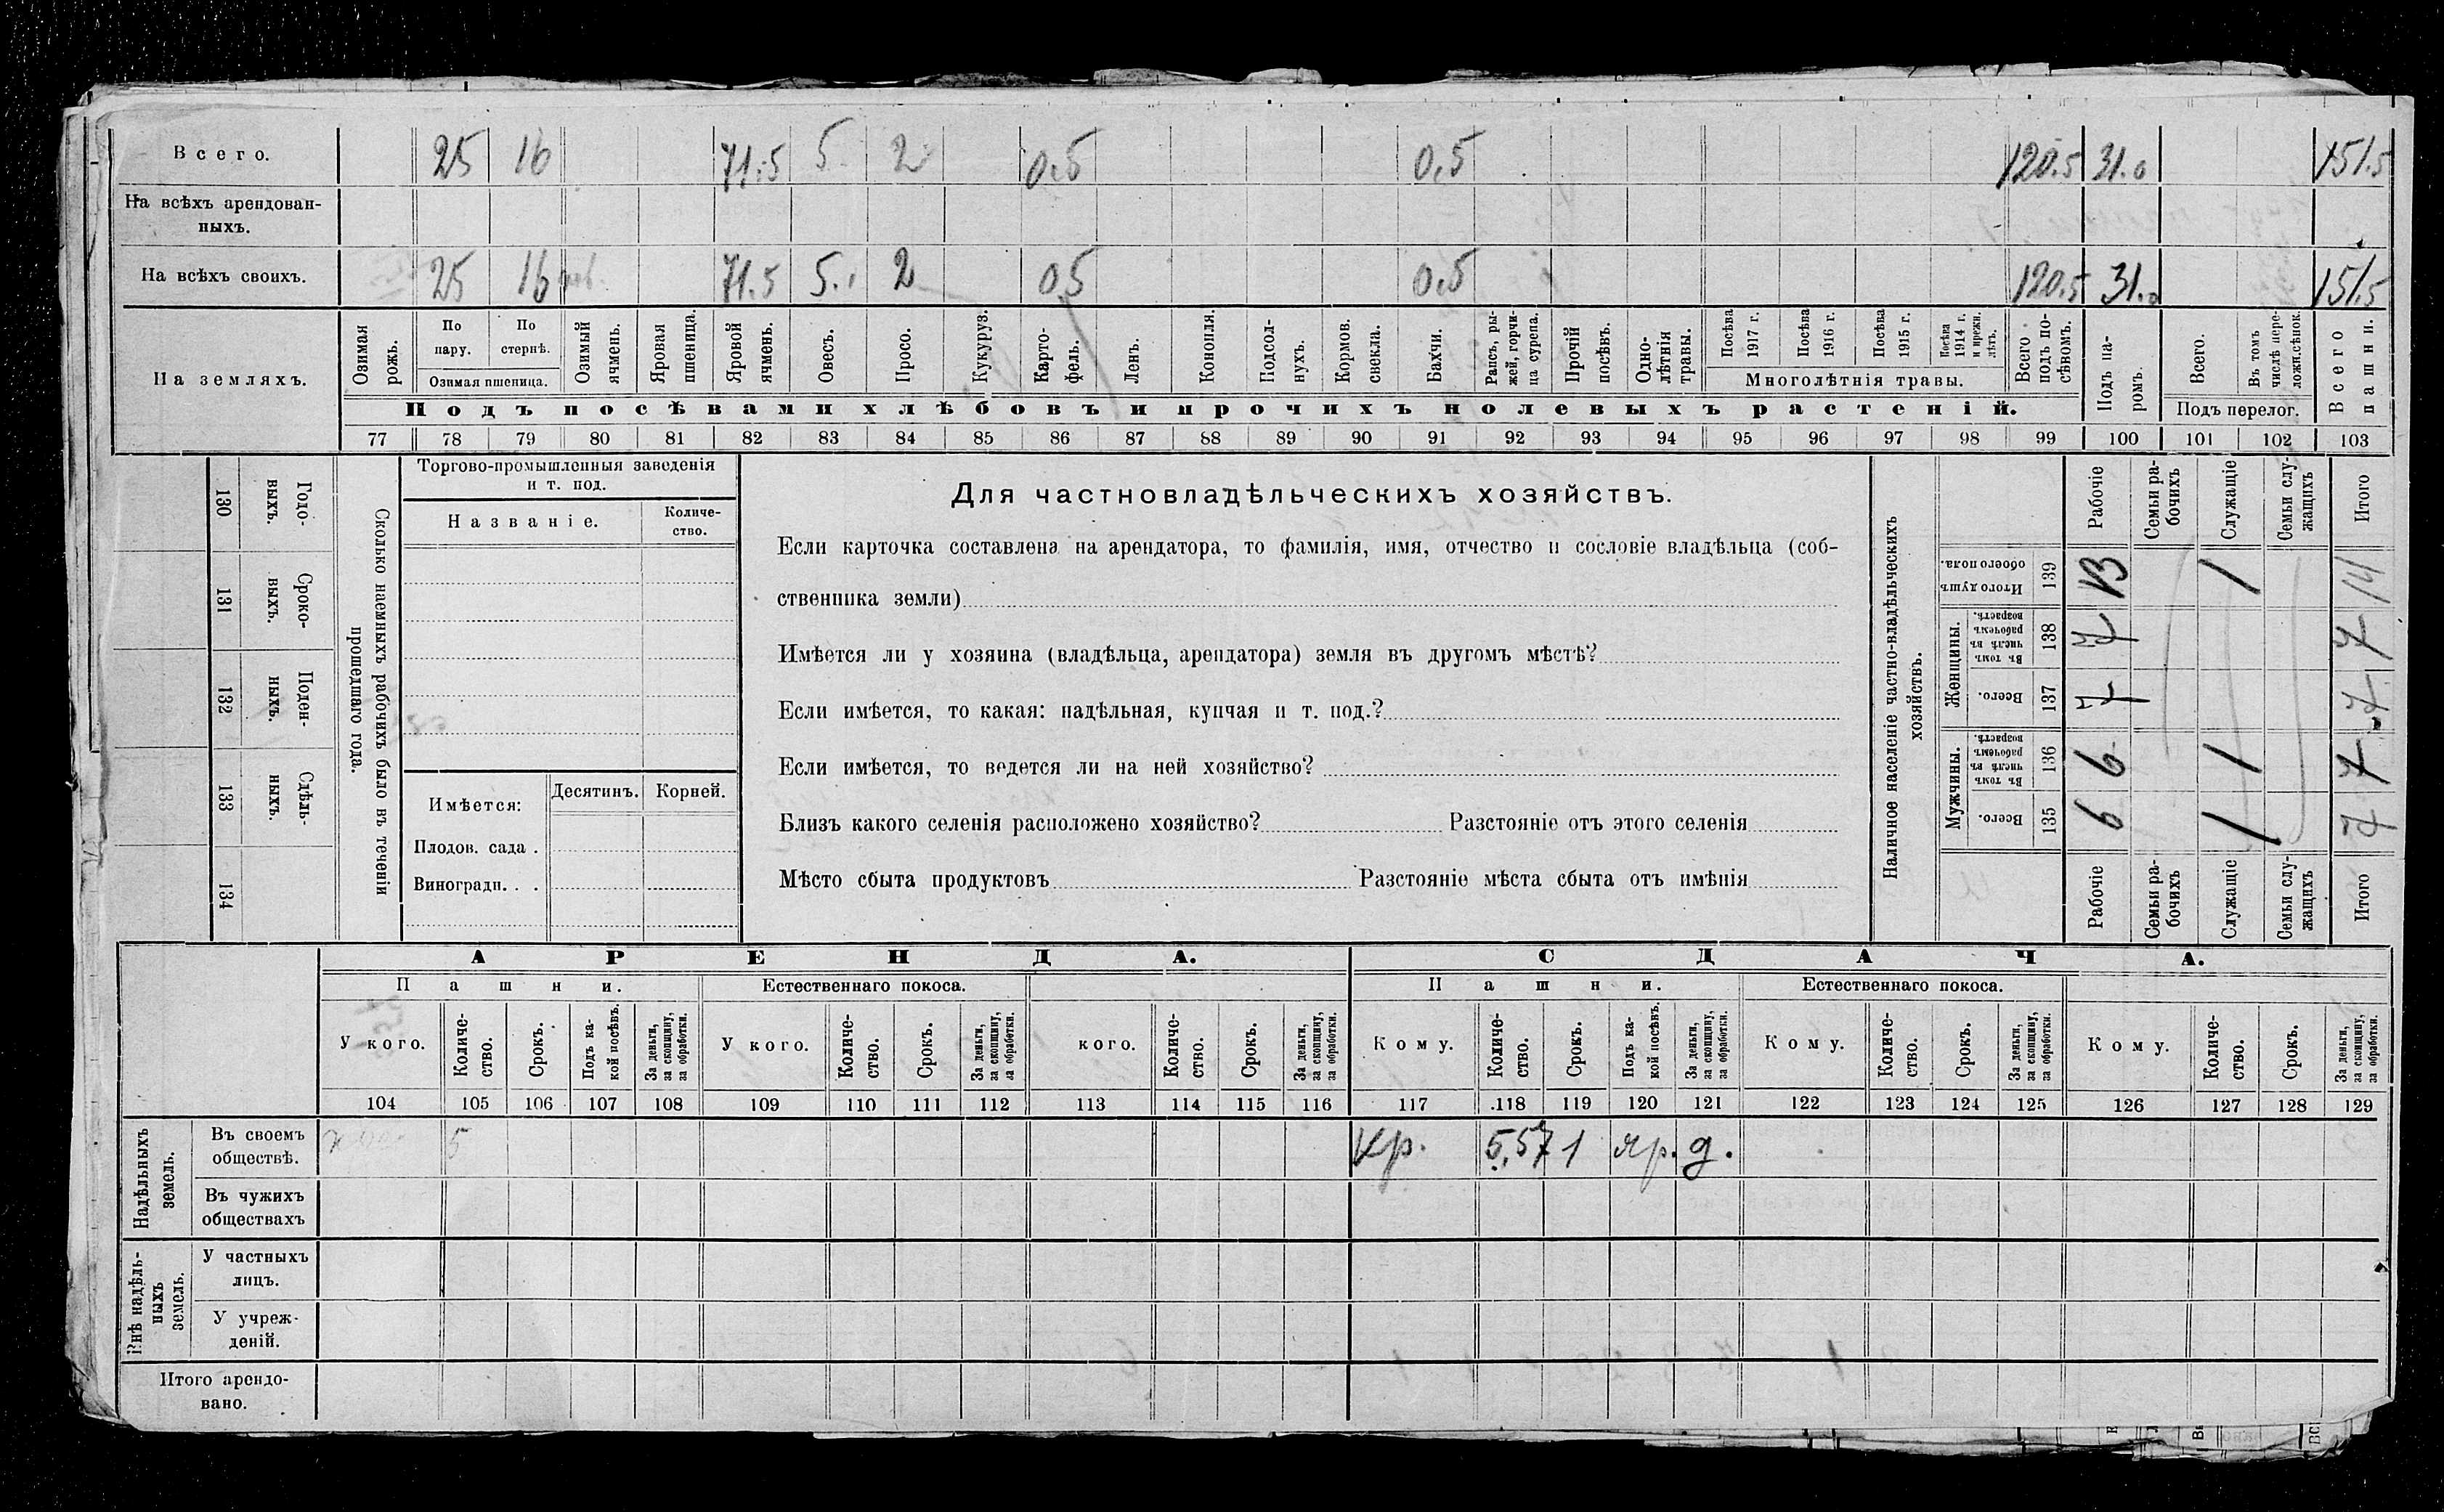 Всего. 25 16 71.5 5 2 0.5 0.5 120.5 31.0 151.5
На всѣхъ арендован-
ныхъ.
На всѣхъ своихъ. 25 16 71.5 5. 2 0.5 0.5 120.5 31.0 151.5
На земляхъ.
Озимая рожь.
По пару.
По стернѣ.
Озимая пшеница.
Озимый ячмень.
Яровая пшеница.
Яровой ячмень.
Овесъ.
Просо.
Кукуруз.
Карто-фель.
Ленъ.
Конопля.
Подсол-нухъ.
Кормов. свекла.
Бахчи.
Рапсъ, ры-жей, горчи-ца сурепа.
Прочій посѣвъ.
Одно-лѣтнія травы.
Посѣва 1917 г.
Посѣва 1916 г.
Посѣва 1915 г.
Посѣва 1914 г. и прежн. лѣтъ.
Многолѣтнія травы.
Всего подъ по-сѣвомъ.
Подъ па-ромъ.
Всего.
Въ томъ числѣ пере-ложн.сѣнок.
Подъ перелог.
Всего пашни.
Подъ посѣвами хлѣбовъ и прочихъ полевыхъ растеній.
77 78 79 80 81 82 83 84 85 86 87 88 89 90 91 92 93 94 95 96 97 98 99 100 101 102 103
130 Годо-выхъ.
131 Сроко-выхъ.
132 Поден-ныхъ.
133 Сдѣль-ныхъ.
134
Сколько наемныхъ рабочихъ было въ теченіи
прошедшаго года.
Торгово-промышленныя заведенія
и т. под.
Названіе.
Количе-
ство.
Имѣется: Десятинъ. Корней.
Плодов. сада .
Виноградн. . .
Для частновладѣльческихъ хозяйствъ.
Если карточка составлена на арендатора, то фамилія, имя, отчество и сословіе владѣльца (соб-
ственника земли)
Имѣется ли у хозяина (владѣльца, арендатора) земля въ другомъ мѣстѣ?
Если имѣется, то какая: надѣльная, купчая и т. под.?
Если имѣется, то ведется ли на ней хозяйство?
Близъ какого селенія расположено хозяйство? Разстояніе отъ этого селенія
Мѣсто сбыта продуктовъ Разстояніе мѣста сбыта отъ имѣнія
Наличное населеніе частно-владѣльческихъ
хозяйствъ.
Рабочіе
Семьи ра-бочихъ
Служащіе
Семьи слу-жащихъ
Итого
Итого душъ обоего пола. 139 13 1 14
Женщины.
Въ томъ числѣ въ рабочемъ возрастѣ. 138 7 7
Всего. 137 7 7
Мужчины.
Въ томъ числѣ въ рабочемъ возрастѣ. 136 6 1 7
Всего. 135 6 1 7
Рабочіе
Семьи ра-бочихъ
Служащіе
Семьи слу-жащихъ
Итого
АРЕНДА. СДАЧА.
Пашни. Естественнаго покоса. Пашни. Естественнаго покоса.
У кого.
Количе-ство.
Срокъ.
Подъ ка-кой посѣвъ.
За деньги, за скопщину, за обработки.
У кого.
Количе-ство.
Срокъ.
За деньги, за скопщину, за обработки.
кого.
Количе-ство.
Срокъ.
За деньги, за скопщину, за обработки.
Кому.
Количе-ство.
Срокъ.
Подъ ка-кой посѣвъ.
За деньги, за скопщину, за обработки.
Кому.
Количе-ство.
Срокъ.
За деньги, за скопщину, за обработки.
Кому.
Количе-ство.
Срокъ.
За деньги, за скопщину, за обработки.
104 105 106 107 108 109 110 111 112 113 114 115 116 117 118 119 120 121 122 123 124 125 126 127 128 129
Надѣльныхъ земель.
Въ своемъ
обществѣ. 5 кр. 5,57 1 яр. д.
Въ чужихъ
обществахъ
Внѣ надѣль-ныхъ земель.
У частныхъ
лицъ.
У учреж-
деній.
Итого арендо-
вано.